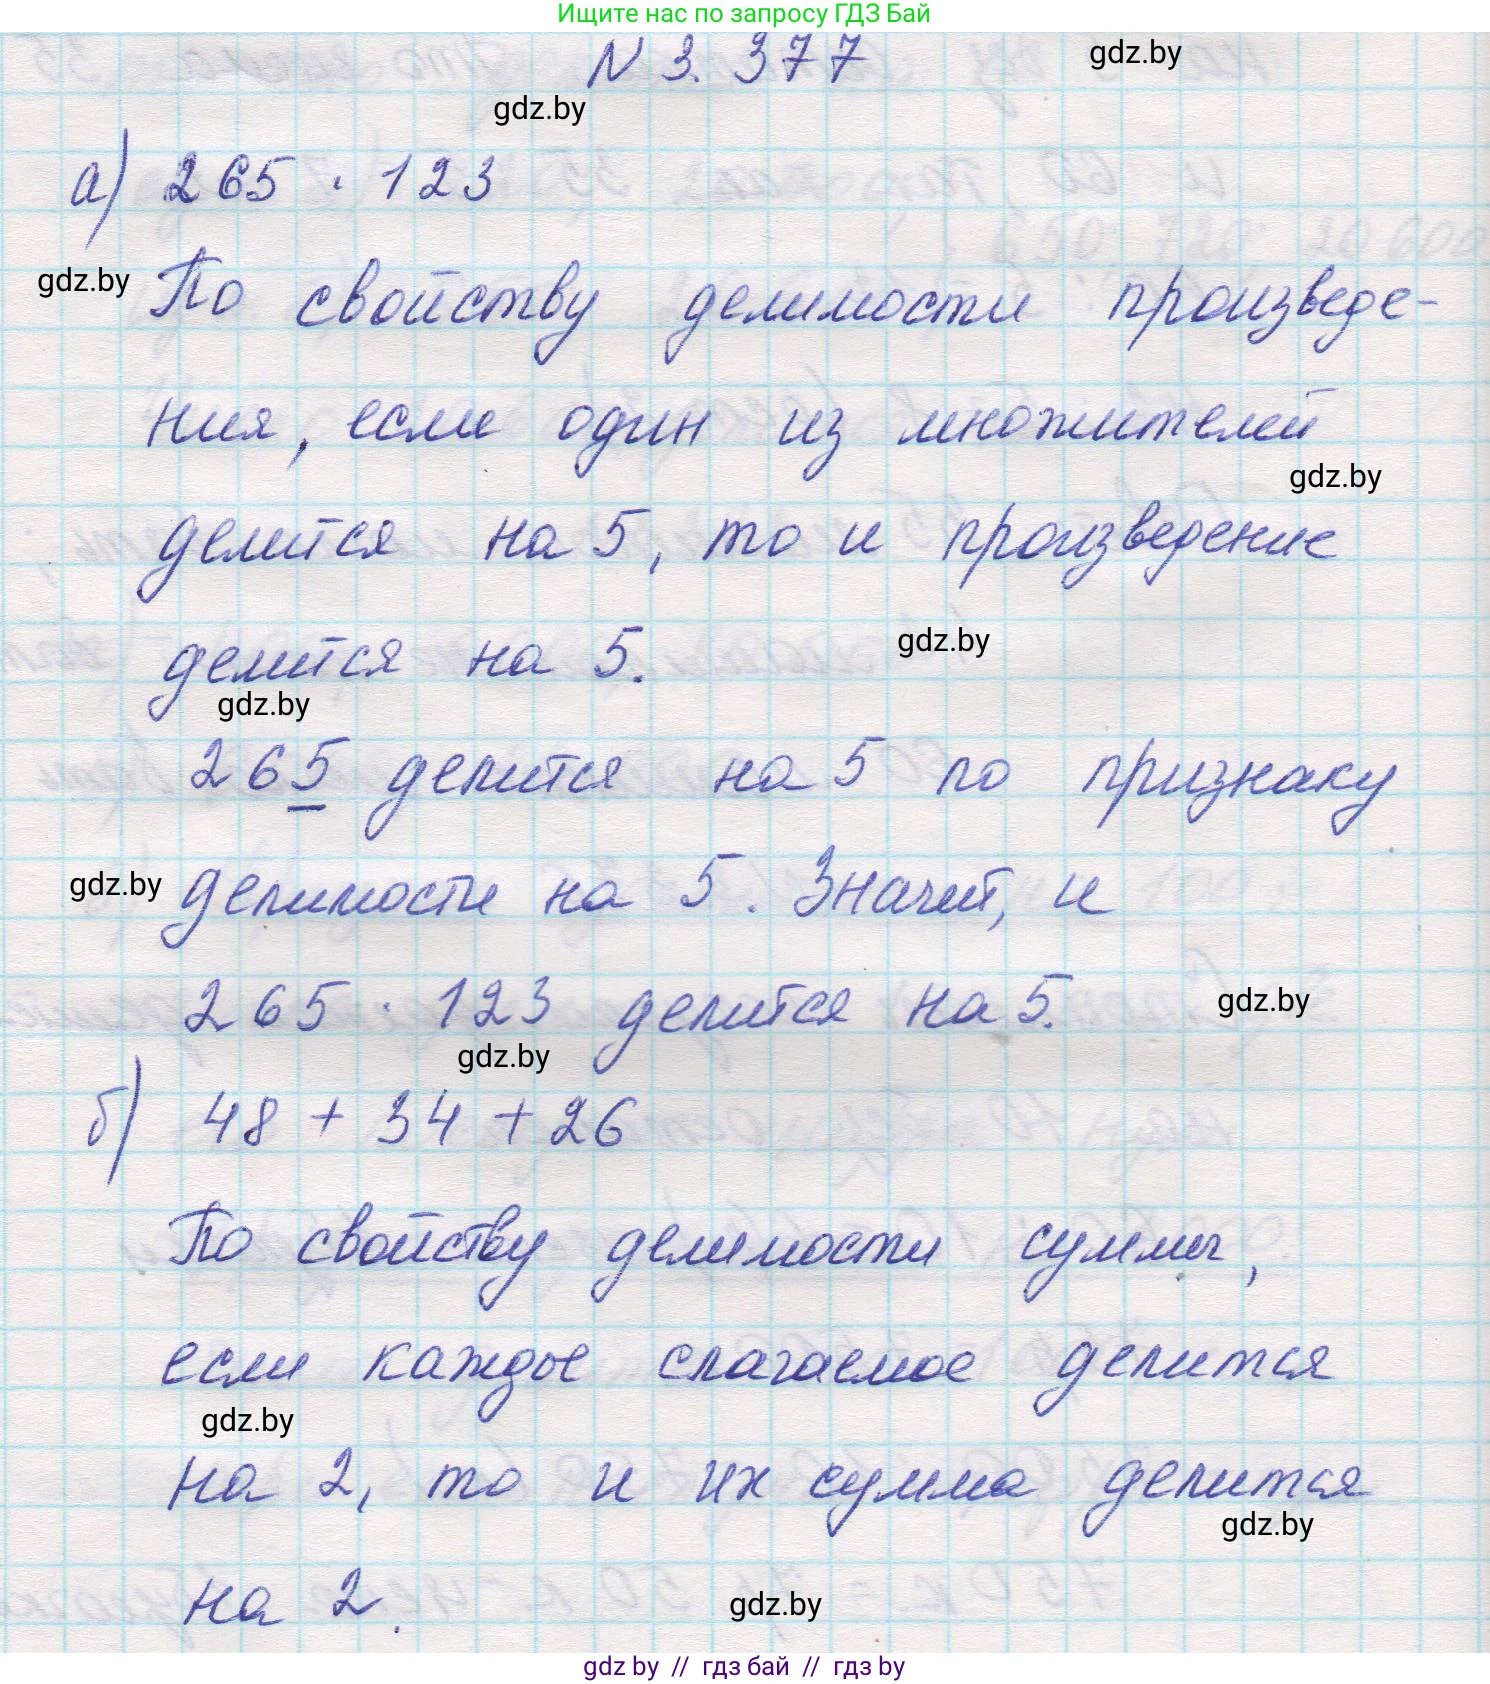 Ищите нас по запросу ГДЗ Бай
N 3. 377
gdz.by
gdz.by
а) 265 · 123
gdz.by
По свойству делимости произведе-
ния, если один из множителей
gdz.by
делится на 5, то и произведение
делится на 5.
gdz.by
gdz.by
265 делится на 5 по признаку
gdz.by
делимости на 5. Значит, и
265 · 123 делится на 5.
gdz.by
gdz.by
б) 48 + 34 + 26
По свойству делимости суммы,
если каждое слагаемое делится
gdz.by
на 2, то и их сумма делится
gdz.by
на 2.
gdz.by
gdz by // гдз бай // гдз by